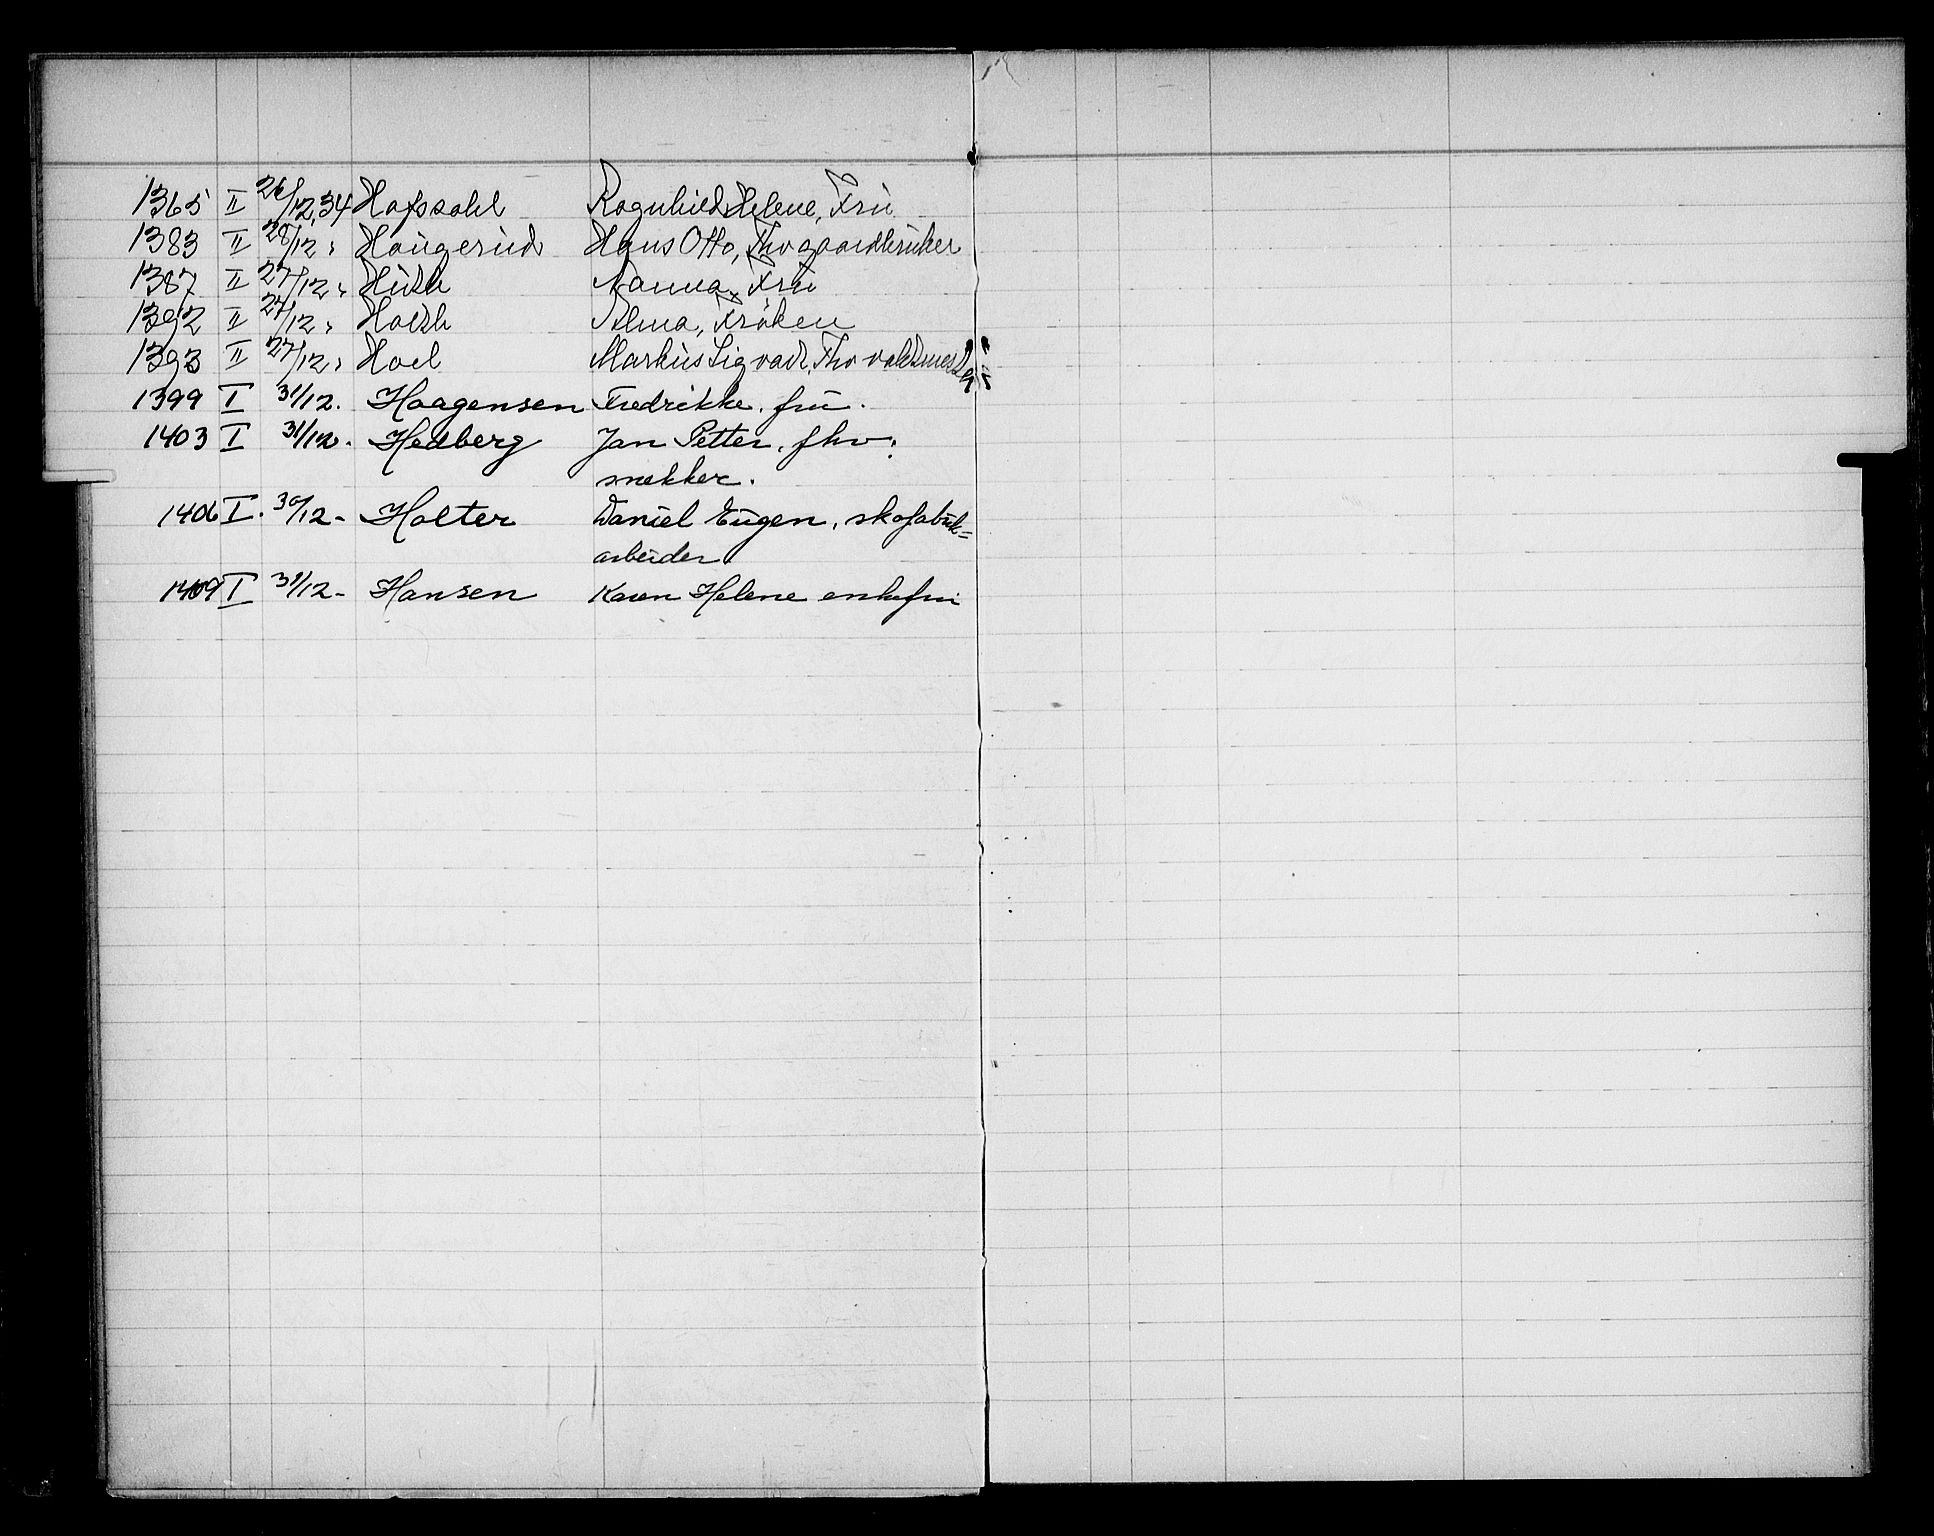 1365 II 26/12,34 Hofsdahl Ragnhild Helene, Fru
1383 II 28/12 " Haugerud Hans Otto, Fhv gaardbruker
1387 II 27/12 " Huth Nanna, Fru
1392 II 27/12 " Holth Alma, Frøken
1393 II 27/12 " Hoel Markus Sigvart, Fhv vaktmester
1399 I 31/12. Haagensen Fredrikke. frü.
1403 I 31/12. Hedberg Jan Petter, fhv.
snekker.
1406 I. 30/12 - Holter Daniel Eugen, skofabrik=
arbeider
1409 I 31/12 - Hansen Karen Helene enkefru